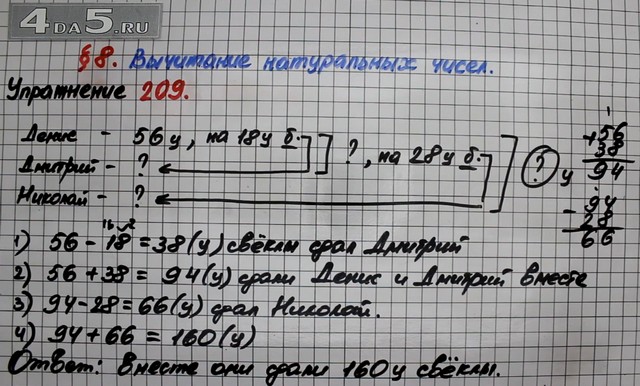 4DA5.RU
§8. Вычитание натуральных чисел.
Упражнение 209.
Денис - 56 ц, на 18 ц б. ? , на 28 ц б. ? ц
Дмитрий - ?
Николай - ?
+56
38
94
- 94
28
66
1) 56 - 18 = 38 (ц) свёклы сдал Дмитрий
2) 56 + 38 = 94 (ц) сдали Денис и Дмитрий вместе
3) 94 - 28 = 66 (ц) сдал Николай.
4) 94 + 66 = 160 (ц)
Ответ: Вместе они сдали 160 ц свёклы.